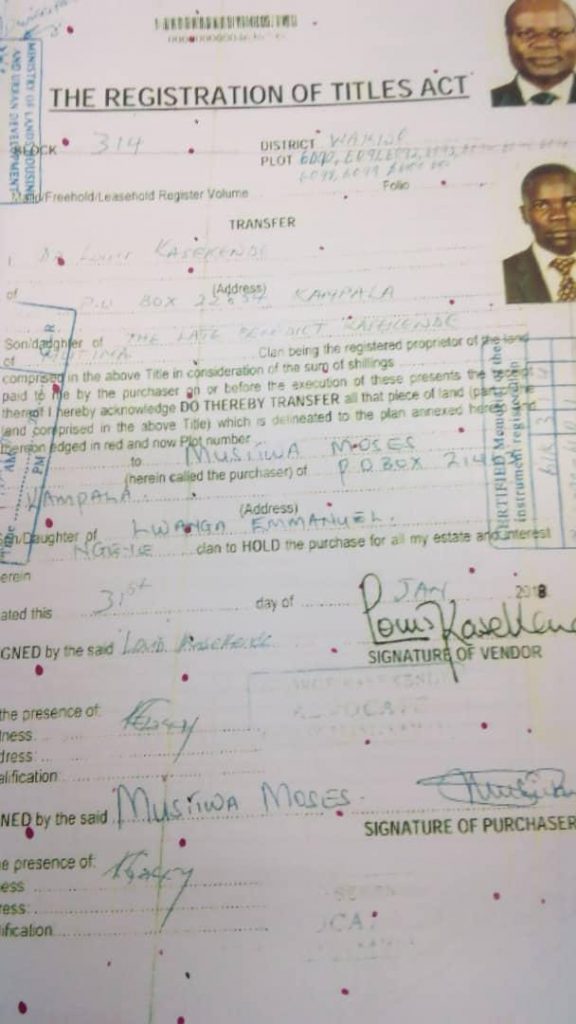 MINISTRY OF LANDS HOUSING
AND URBAN DEVELOPMENT
THE REGISTRATION OF TITLES ACT
BLOCK 314
DISTRICT WAKISO
PLOT 6090, 6091, 6092, 6093,
/Freehold/Leasehold Register Volume Folio
TRANSFER
I, Dr Louis KASEKENDE
(Address)
of P.O BOX KAMPALA
Son/daughter of THE LATE BENEDICT KASEKENDE
of Clan being the registered proprietor of the land
comprised in the above Title in consideration of the sum of shillings
paid to me by the purchaser on or before the execution of these presents the
thereof I hereby acknowledge DO THEREBY TRANSFER all that piece of land (part
land comprised in the above Title) which is delineated to the plan annexed hereto and
thereon edged in red and now Plot number
to MUSIIWA MOSES
(herein called the purchaser) of P.O BOX
KAMPALA
(Address)
Son/Daughter of LWANGA EMMANUEL.
NGEYE clan to HOLD the purchase for all my estate and interest
erein
ated this 31st day of JAN 2018
GNED by the said Louis Kasekende
Louis Kasekende
SIGNATURE OF VENDOR
the presence of:
ness
dress:
alification
ADVOCATE
NED by the said MUSIIWA MOSES
SIGNATURE OF PURCHASER
e presence of:
ess
ress:
ification
CERTIFIED Memorial of the
instrument registration